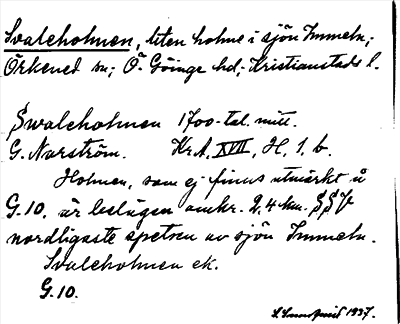 Svaleholmen, liten holme i sjön Immeln,
Örkened sn; Ö. Göinge hd; Kristianstads l.
Swaleholmen 1700-tal. mitt.
G. Norström. Kr. A, XVII, H, 1, b.
Holmen, som ej finns utmärkt å
G. 10. är belägen omkr. 2,4 km. SSV
nordligaste spetsen av sjön Immeln.
Svaleholmen ek.
G. 10.
1937.